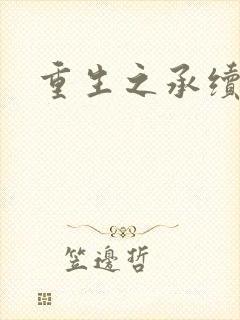 重生之承續
笠邊哲